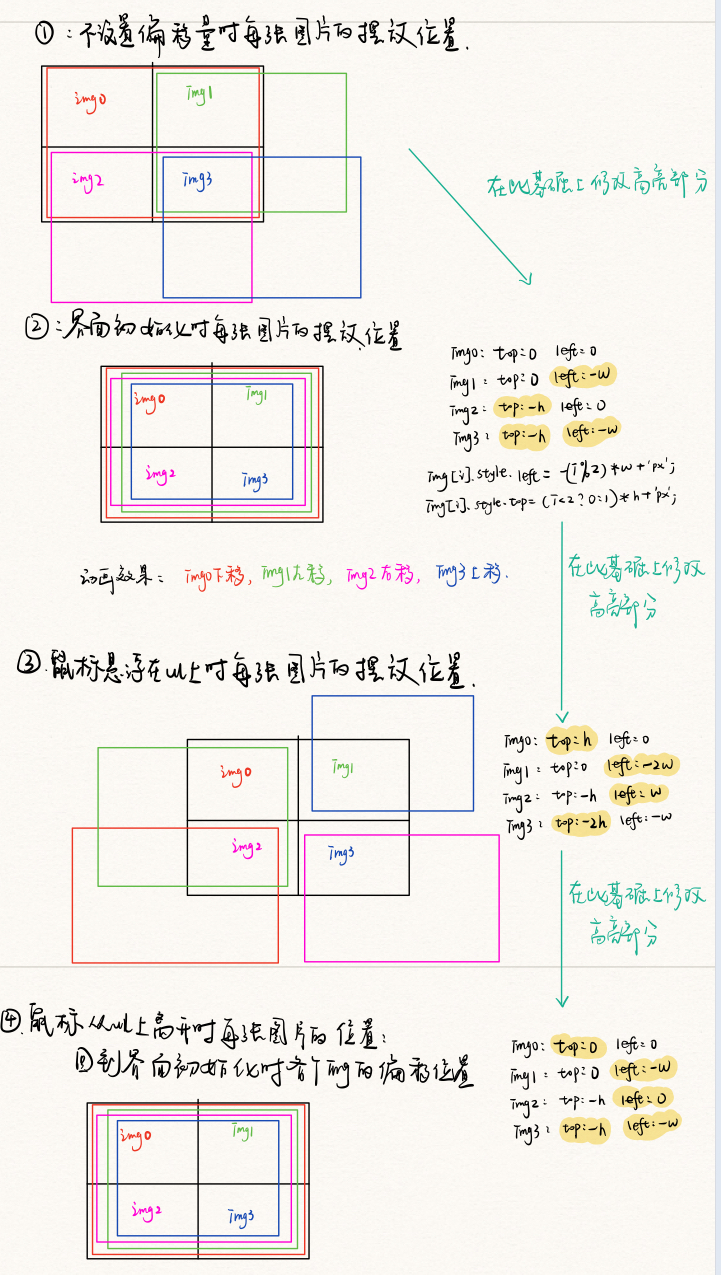 ①:不设置偏移量时每张图片的摆放位置.
img0
img1
img2
img3
在此基础上修改高亮部分
②:界面初始化时每张图片的摆放位置
img0
img1
img2
img3
img0: top:0 left:0
img1: top:0 left:-w
img2: top:-h left:0
img3: top:-h left:-w
img[i].style.left = -(i%2)*w+'px';
img[i].style.top= (i<2?0:1)*h+'px';
动画效果: img0下移, img1左移, img2右移, img3上移.
在此基础上修改
高亮部分
③.鼠标悬浮在ul上时每张图片的摆放位置.
img0
img1
img2
img3
img0: top:h left:0
img1: top:0 left:-2w
img2: top:-h left:w
img3: top:-2h left:-w
在此基础上修改
高亮部分
④.鼠标从ul上离开时每张图片的位置:
回到界面初始化时各个img的偏移位置
img0
img1
img2
img3
img0: top:0 left:0
img1: top:0 left:-w
img2: top:-h left:0
img3: top:-h left:-w